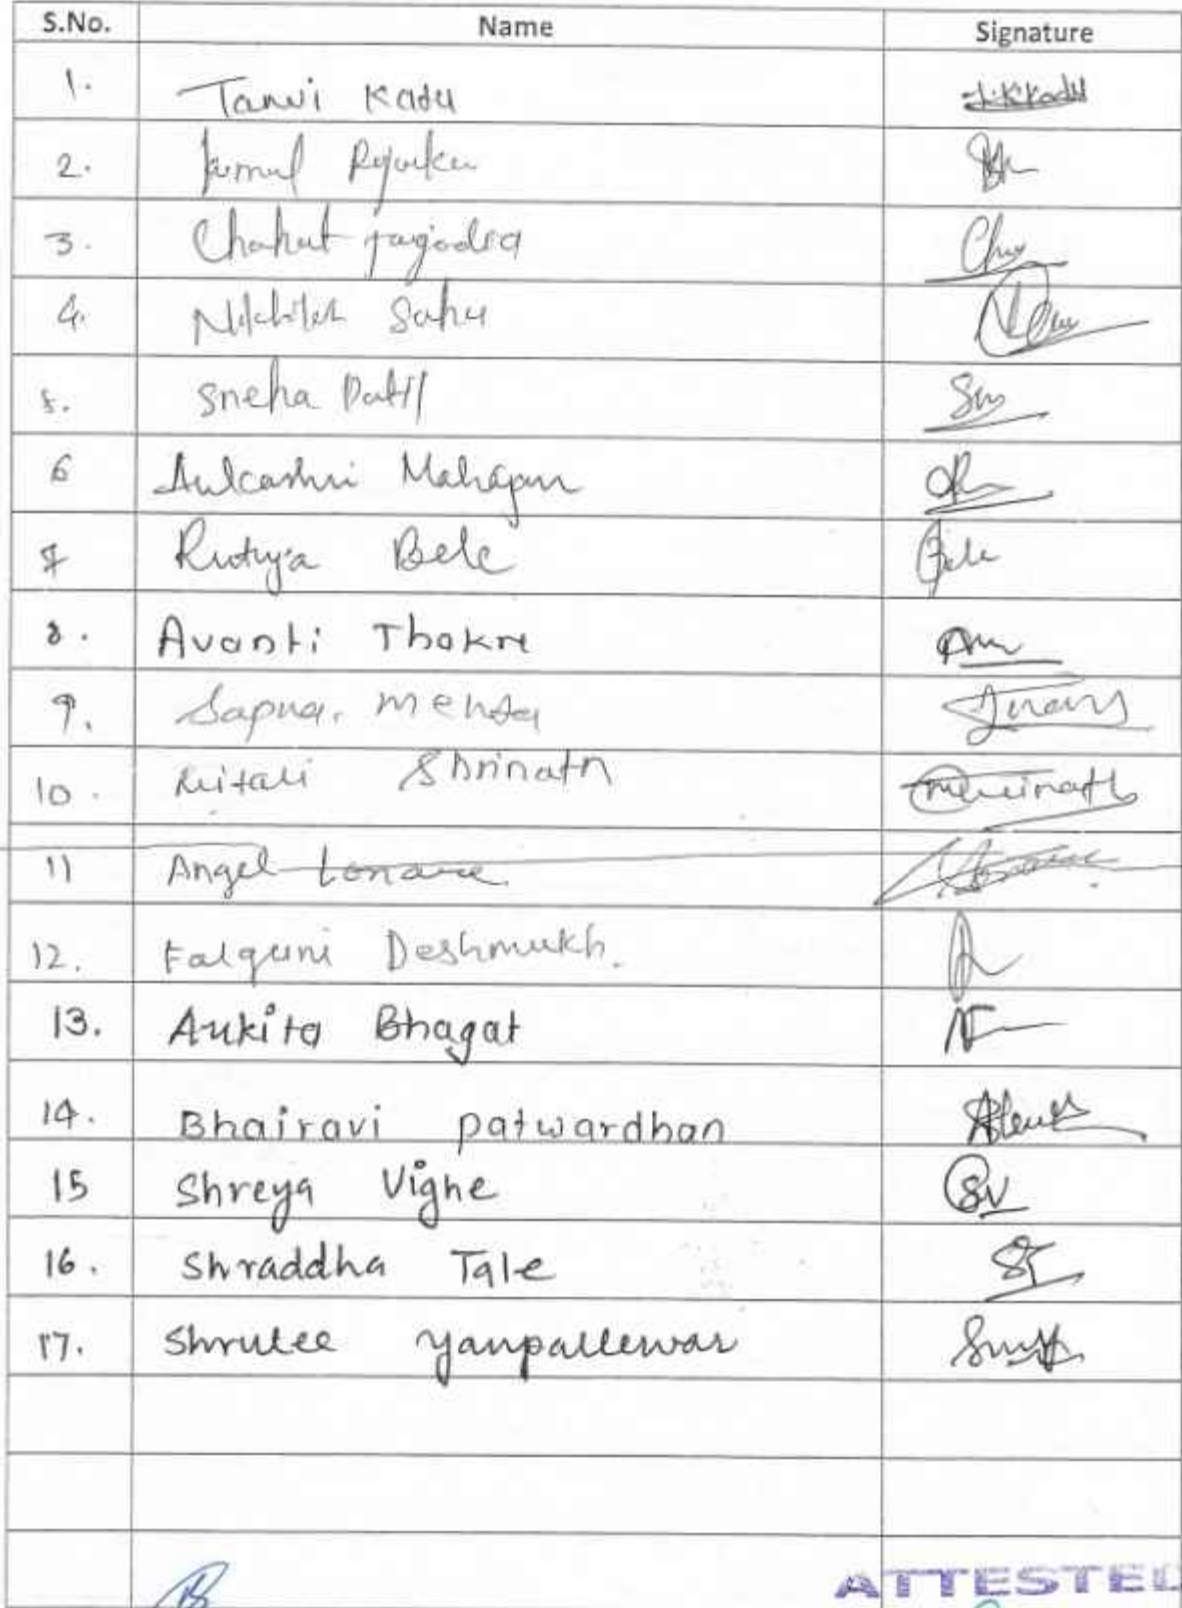 S.No. Name Signature
1. Tanvi Kadu T.K.Kadu
2.
3. Chahat Jagodra
4. Sahu
5. Sneha Patil
6 Mahajan
7 Rutuja Bele Bele
8. Avanti Thokre
9. Sapna. Mehta
10. Mitali Shrinath
11 Angel Lonare
12. Falguni Deshmukh.
13. Ankita Bhagat
14. Bhairavi patwardhan
15 Shreya Vighe SV
16. Shraddha Tale ST
17. Shrutee Yanpallewar
ATTESTED